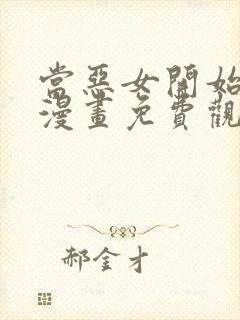 當惡女開始
漫畫免費觀
郝金才